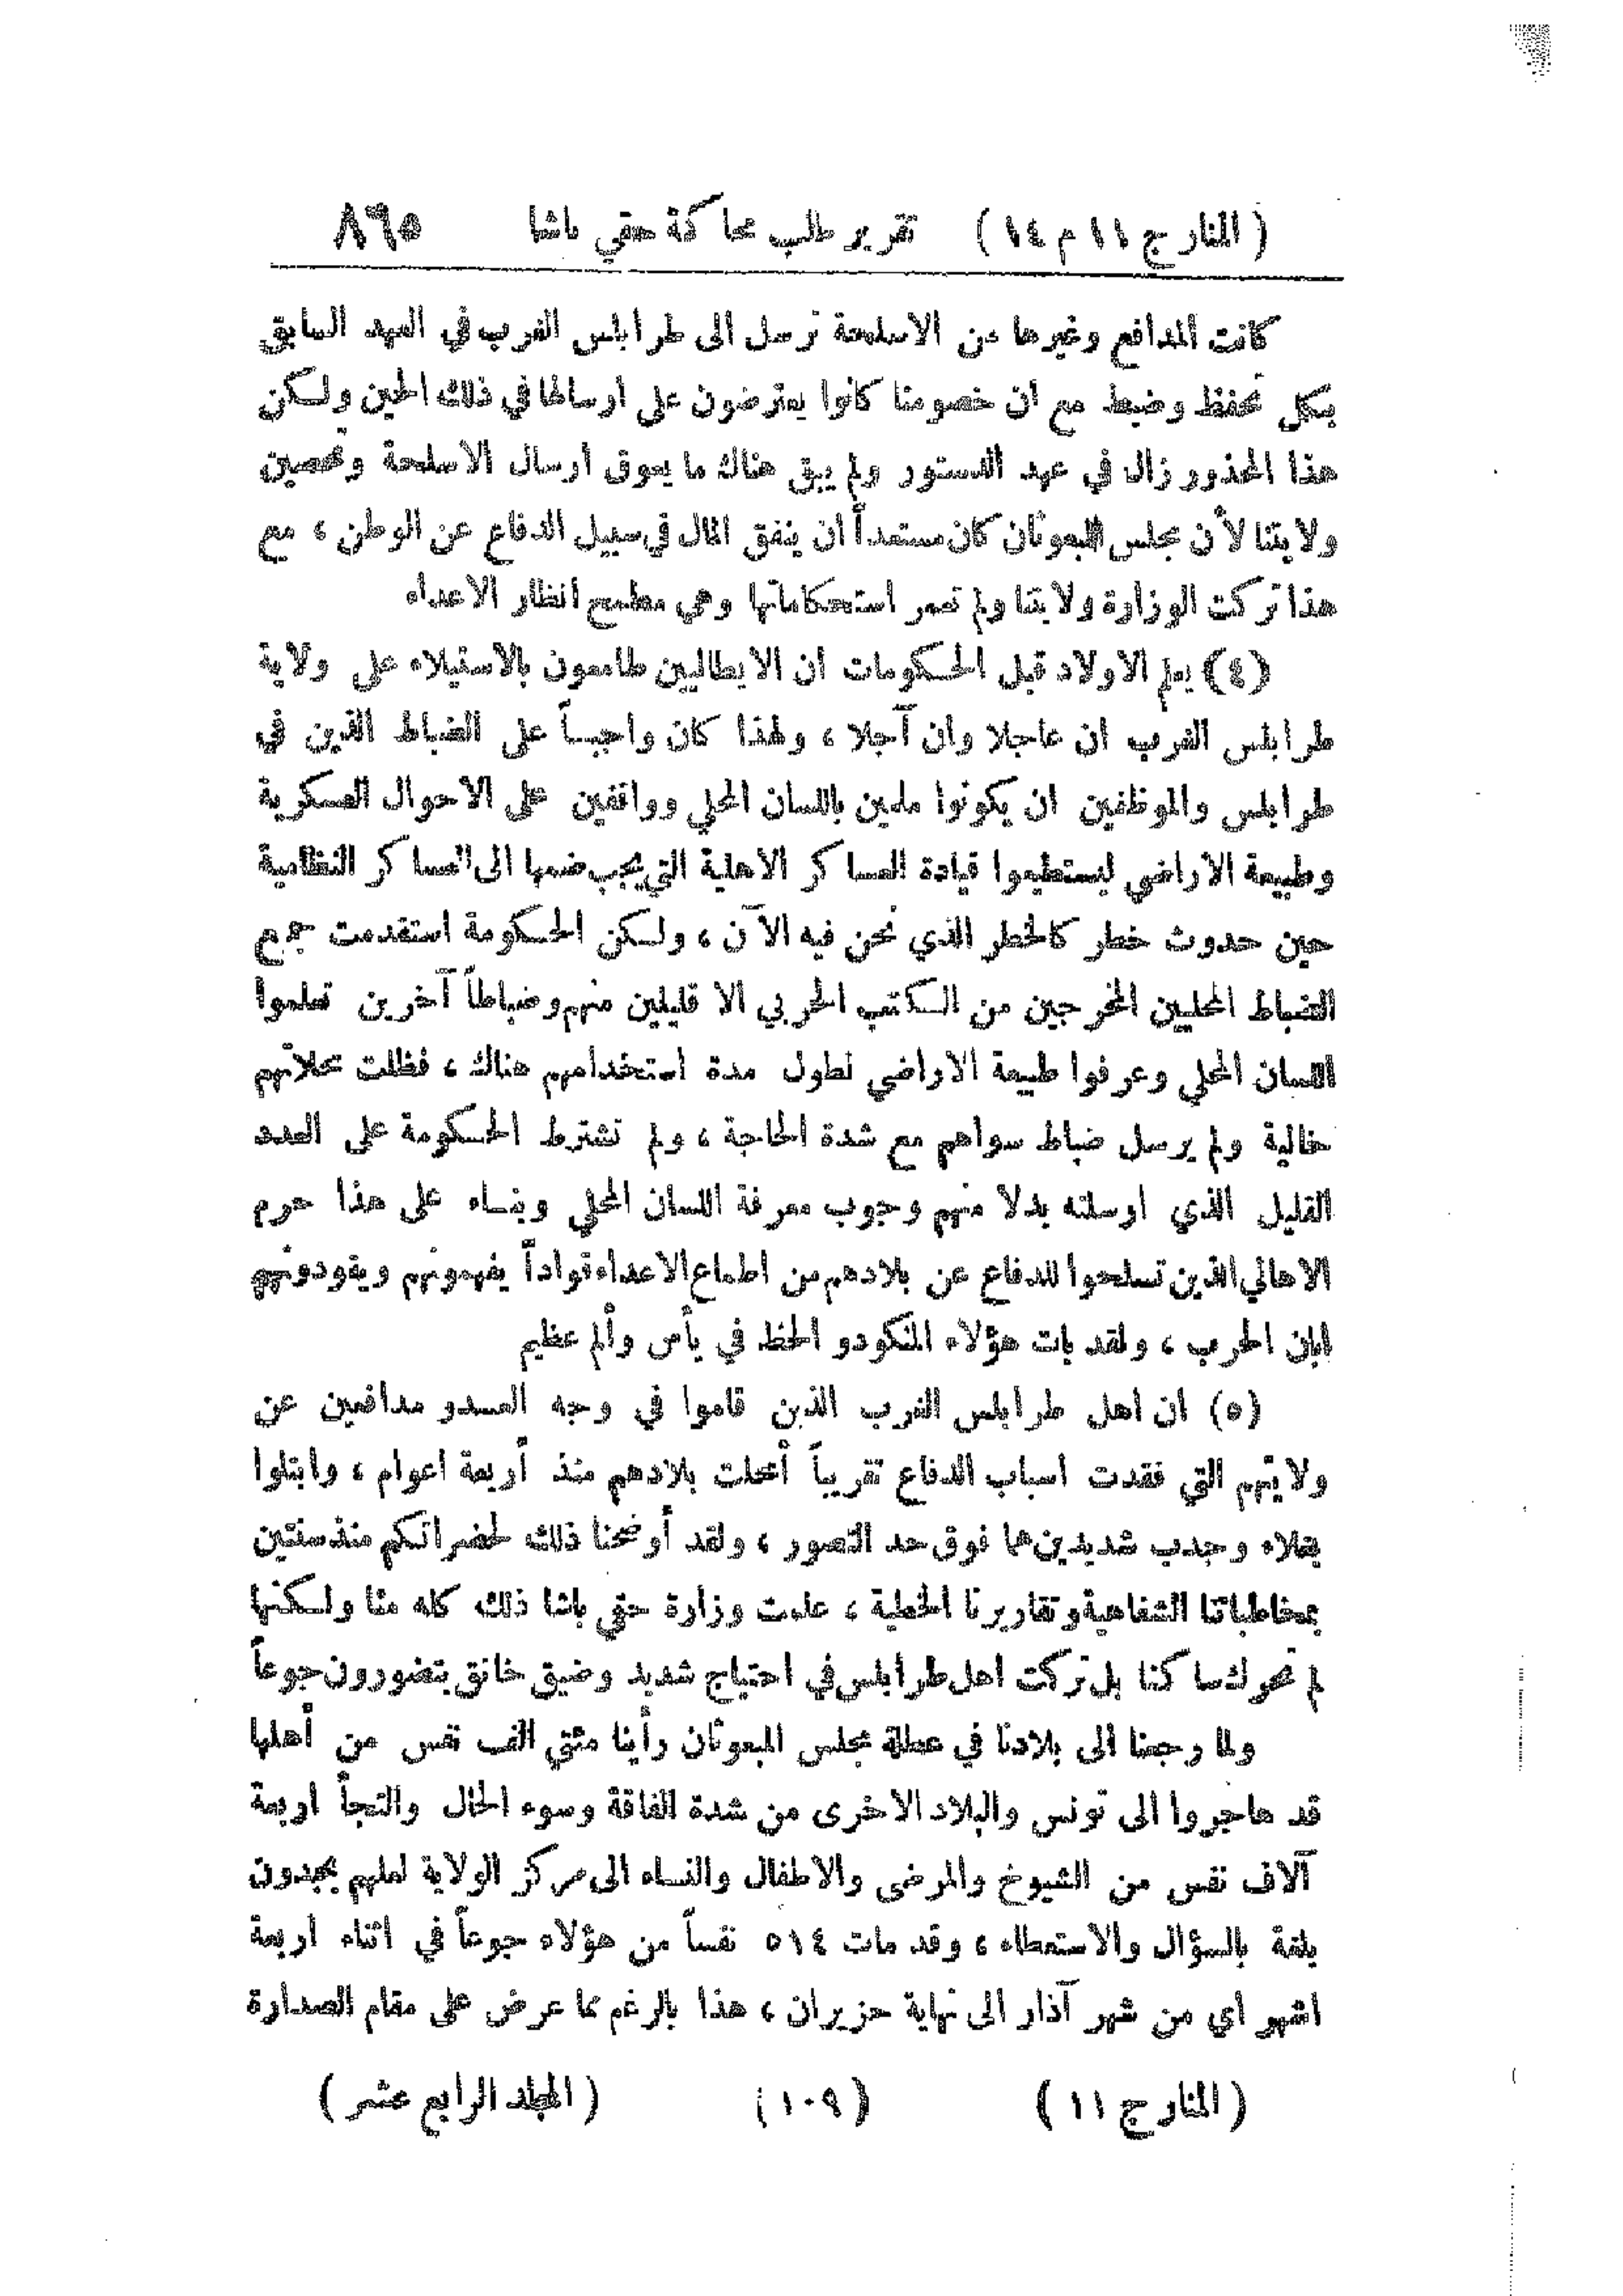 ( المنار ج ١١ م ١٤ ) تقرير طلب محاكمة حقي باشا ٨٦٥
كانت المدافع وغيرها من الاسلحة ترسل الى طرابلس الغرب في العهد السابق
بكل تحفظ وضبط مع ان خصومنا كانوا يعترضون على ارسالها في ذلك الحين ولكن
هذا المحذور زال في عهد الدستور ولم يبق هناك ما يعوق ارسال الاسلحة وتحصين
ولايتنا لأن مجلس المبعوثان كان مستعداً ان ينفق المال في سبيل الدفاع عن الوطن ، مع
هذا تركت الوزارة ولايتنا ولم تعمر استحكاماتها وهي مطمح انظار الاعداء
(٤) يعلم الاولاد قبل الحكومات ان الايطاليين طامعون بالاستيلاء على ولاية
طرابلس الغرب ان عاجلا وان آجلا ، ولهذا كان واجباً على الضباط الذين في
طرابلس والموظفين ان يكونوا ملمين باللسان المحلي وواقفين على الاحوال العسكرية
وطبيعة الاراضي ليستطيعوا قيادة العساكر الاهلية التي يجب ضمها الى العساكر النظامية
حين حدوث خطر كالخطر الذي نحن فيه الآن ، ولكن الحكومة استقدمت جميع
الضباط المحليين المخرجين من المكتب الحربي الا قليلين منهم وضباطاً آخرين تعلموا
اللسان المحلي وعرفوا طبيعة الاراضي لطول مدة استخدامهم هناك ، فظلت محلاتهم
خالية ولم يرسل ضباط سواهم مع شدة الحاجة ، ولم تشترط الحكومة على العدد
القليل الذي ارسلته بدلا منهم وجوب معرفة اللسان المحلي وبناء على هذا حرم
الاهالي الذين تسلحوا للدفاع عن بلادهم من اطماع الاعداء قواداً يفهمونهم ويقودونهم
ابان الحرب ، ولقد بات هؤلاء المنكودو الحظ في يأس وألم عظيم
(٥) ان اهل طرابلس الغرب الذين قاموا في وجه العدو مدافعين عن
ولايتهم التي فقدت اسباب الدفاع تقريباً أمحلت بلادهم منذ أربعة اعوام ، وابتلوا
بغلاء وجدب شديدين هما فوق حد التصور ، ولقد أوضحنا ذلك لحضراتكم منذ سنتين
بمخاطباتنا الشفاهية وتقاريرنا الخطية ، علمت وزارة حقي باشا ذلك كله منا ولكنها
لم تحرك ساكنا بل تركت اهل طرابلس في احتياج شديد وضيق خانق يتضورون جوعاً
ولما رجعنا الى بلادنا في عطلة مجلس المبعوثان رأينا مئتي الف نفس من أهلها
قد هاجروا الى تونس والبلاد الاخرى من شدة الفاقة وسوء الحال والتجأ اربعة
آلاف نفس من الشيوخ والمرضى والاطفال والنساء الى مركز الولاية لعلهم يجدون
بلغة بالسؤال والاستعطاء ، وقد مات ٥١٤ نفساً من هؤلاء جوعاً في اثناء اربعة
اشهر اي من شهر آذار الى نهاية حزيران ، هذا بالرغم مما عرض على مقام الصدارة
( المنار ج ١١ ) (١٠٩) ( المجلد الرابع عشر )